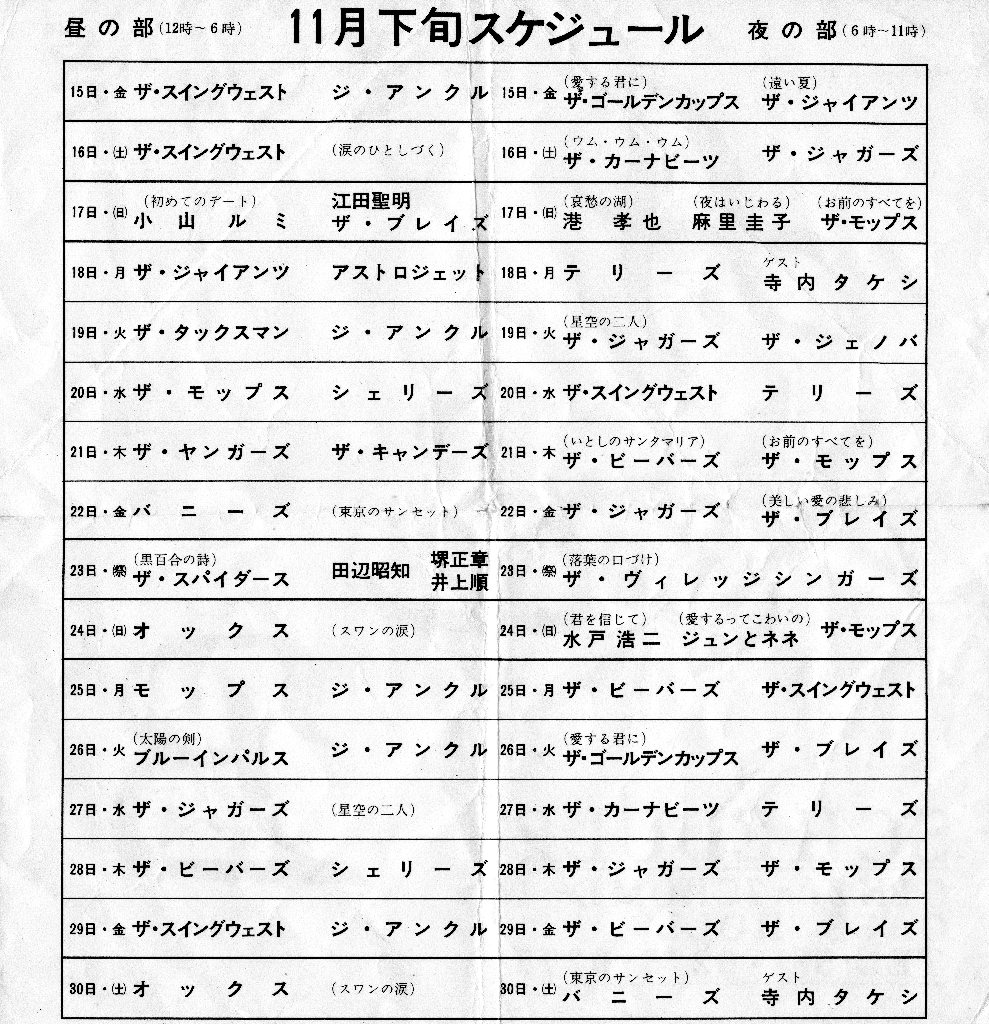 昼の部(12時～6時) 11月下旬スケジュール 夜の部(6時～11時)
15日・金 ザ・スイングウェスト ジ・アンクル 15日・金 (愛する君に) ザ・ゴールデンカップス (遠い夏) ザ・ジャイアンツ
16日・(土) ザ・スイングウェスト (涙のひとしづく) 16日・(土) (ウム・ウム・ウム) ザ・カーナビーツ ザ・ジャガーズ
17日・(日) (初めてのデート) 小山ルミ 江田聖明 ザ・ブレイズ 17日・(日) (哀愁の湖) 港孝也 (夜はいじわる) 麻里圭子 (お前のすべてを) ザ・モップス
18日・月 ザ・ジャイアンツ アストロジェット 18日・月 テリーズ ゲスト 寺内タケシ
19日・火 ザ・タックスマン ジ・アンクル 19日・火 (星空の二人) ザ・ジャガーズ ザ・ジェノバ
20日・水 ザ・モップス シェリーズ 20日・水 ザ・スイングウェスト テリーズ
21日・木 ザ・ヤンガーズ ザ・キャンデーズ 21日・木 (いとしのサンタマリア) ザ・ビーバーズ (お前のすべてを) ザ・モップス
22日・金 バニーズ (東京のサンセット) 22日・金 ザ・ジャガーズ (美しい愛の悲しみ) ザ・ブレイズ
23日・(祭) (黒百合の詩) ザ・スパイダース 田辺昭知 堺正章 井上順 23日・(祭) (落葉の口づけ) ザ・ヴィレッジシンガーズ
24日・(日) オックス (スワンの涙) 24日・(日) (君を信じて) 水戸浩二 (愛するってこわいの) ジュンとネネ ザ・モップス
25日・月 モップス ジ・アンクル 25日・月 ザ・ビーバーズ ザ・スイングウェスト
26日・火 (太陽の剣) ブルーインパルス ジ・アンクル 26日・火 (愛する君に) ザ・ゴールデンカップス ザ・ブレイズ
27日・水 ザ・ジャガーズ (星空の二人) 27日・水 ザ・カーナビーツ テリーズ
28日・木 ザ・ビーバーズ シェリーズ 28日・木 ザ・ジャガーズ ザ・モップス
29日・金 ザ・スイングウェスト ジ・アンクル 29日・金 ザ・ビーバーズ ザ・ブレイズ
30日・(土) オックス (スワンの涙) 30日・(土) (東京のサンセット) バニーズ ゲスト 寺内タケシ